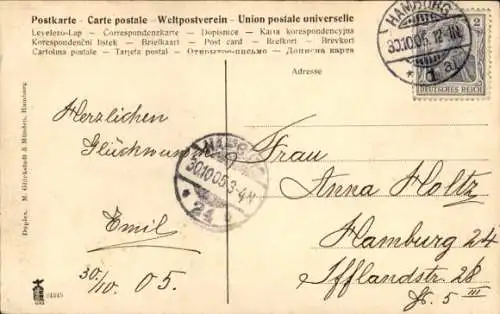 Postkarte - Carte postale - Weltpostverein - Union postale universelle
Levelezo-Lap — Correspondenzkarte — Dopisnice — Карта korespondencyjna
Korespondenční listek — Briefkaart — Post card — Brefkort — Brevkort
Cartolina postale — Tarjeta postal — Открытое письмо — Дописна карта
Adresse
HAMBURG
30.10.05.12-1N.
* 1 a.
2
DEUTSCHES REICH
Herzlichen
Glückwunsch
Emil
30./10. 05.
HAMBURG
30.10.05.3-4N
* 24
Frau
Anna Holtz
Hamburg 24
Ifflandstr. 28
Hs. 5 III
Duplex. M. Glückstadt & Münden, Hamburg